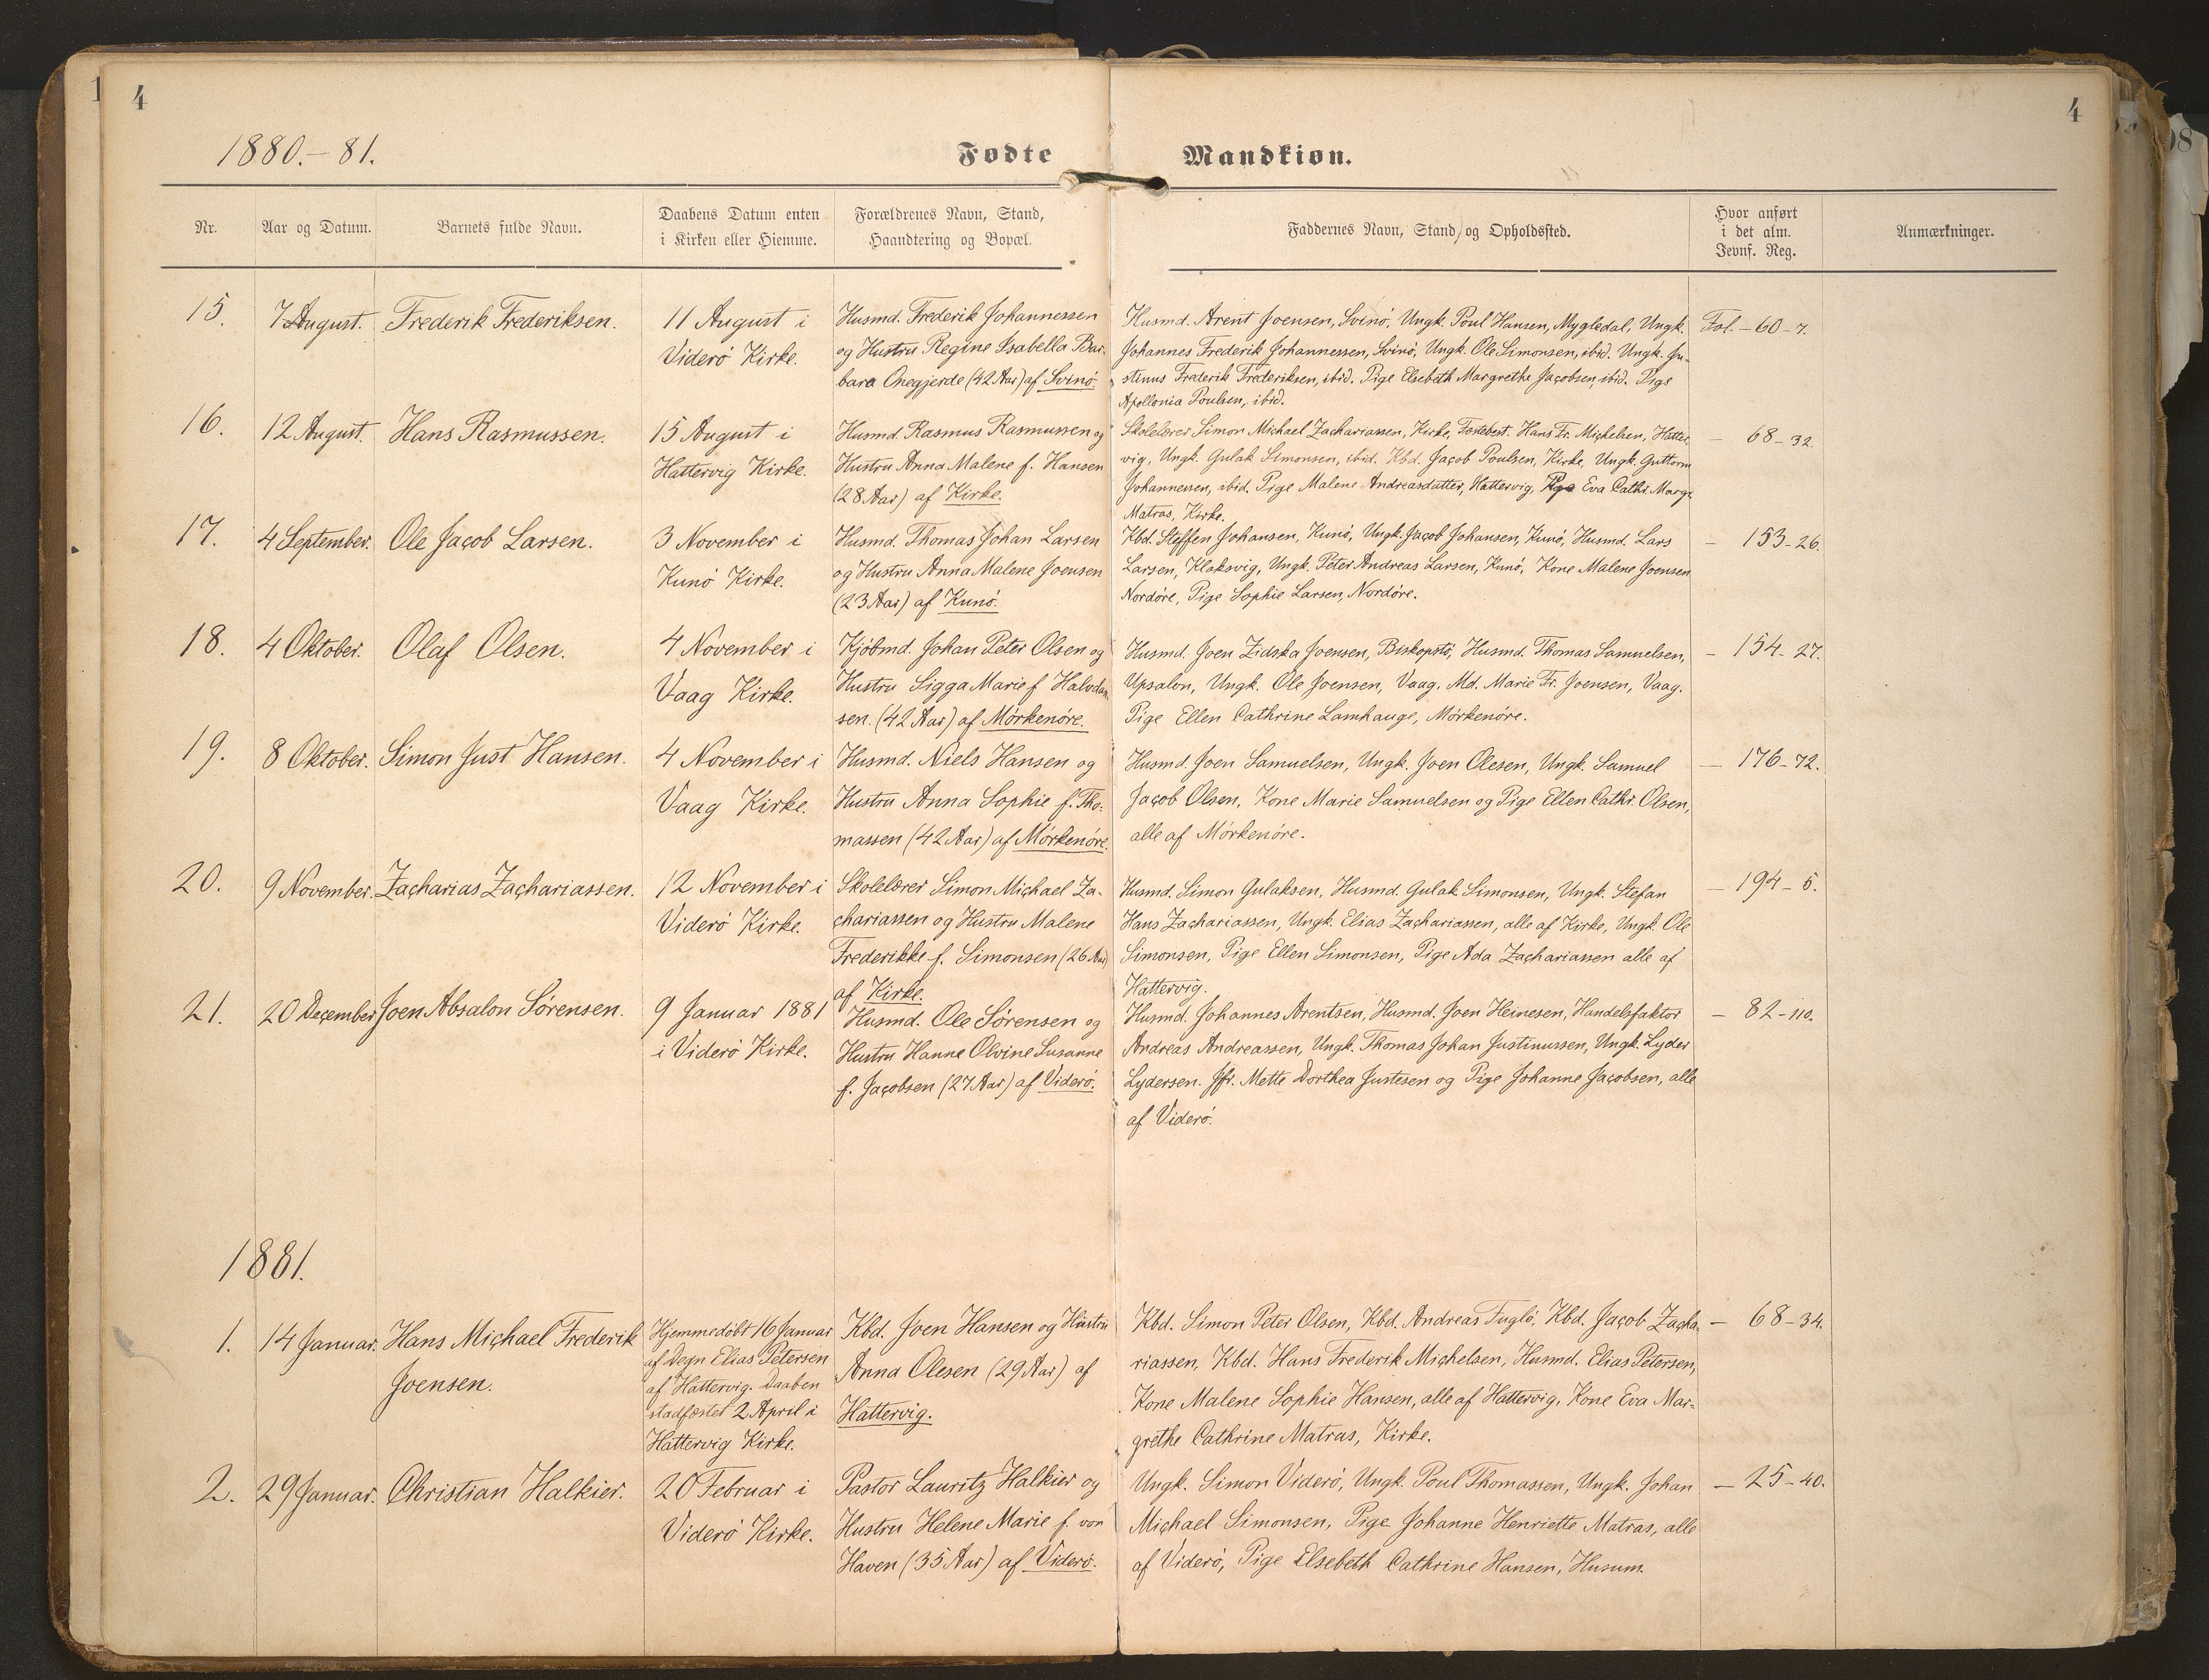 1
4
4
1880.–81.
Fødte
Mandkiøn.
Nr.
Aar og Datum.
Barnets fulde Navn.
Daabens Datum enten
i Kirken eller Hiemme.
Forældrenes Navn, Stand,
Haandtering og Bopæl.
Faddernes Navn, Stand, og Opholdssted.
Hvor anført
i det alm.
Jevnf. Reg.
Anmærkninger.
15.
7 August.
Frederik Frederiksen.
11 August i
Viderö Kirke.
Husmd. Frederik Johannessen
og Hustru Regine Isabella Bar-
bara Onegjerde (42 Aar) af Svinö.
Husmd. Arent Joensen, Svinö, Ungk. Poul Hansen, Mygledal, Ungk.
Johannes Frederik Johannessen, Svinö, Ungk. Ole Simonsen, ibid. Ungk. Ju-
stinus Frederik Frederiksen, ibid. Pige Elsebeth Margrethe Jacobsen, ibid. Pige
Apollonia Poulsen, ibid.
Fol. – 60 – 7.
16.
12 August.
Hans Rasmussen.
15 August i
Hattervig Kirke.
Husmd. Rasmus Rasmussen og
Hustru Anna Malene f. Hansen
(28 Aar) af Kirke.
Skolelærer Simon Michael Zachariassen, Kirke, Fæstebest. Hans Fr. Michelsen, Hatter-
vig, Ungk. Gulak Simonsen, ibid. Kbd. Jacob Poulsen, Kirke, Ungk. Guttorm
Johannessen, ibid. Pige Malene Andreasdatter, Hattervig, Pige Eva Cathr. Margr.
Matras, Kirke.
– 68 – 32.
17.
4 September.
Ole Jacob Larsen.
3 November i
Kunö Kirke.
Husmd. Thomas Johan Larsen
og Hustru Anna Malene Joensen
(23 Aar) af Kunö.
Kbd. Steffen Johansen, Kunö, Ungk. Jacob Johansen, Kunö, Husmd. Lars
Larsen, Klaksvig, Ungk. Peter Andreas Larsen, Kunö, Kone Malene Joensen
Nordöre, Pige Sophie Larsen, Nordöre.
– 153 – 26.
18.
4 Oktober.
Olaf Olsen.
4 November i
Vaag Kirke.
Kjöbmd. Johan Peter Olsen og
Hustru Sigga Marie f. Halvdan-
sen. (42 Aar) af Mörkenöre.
Husmd. Joen Zidska Joensen, Biskopstö, Husmd. Thomas Samuelsen,
Upsalon, Ungk. Ole Joensen, Vaag. Md. Marie Fr. Joensen, Vaag.
Pige Ellen Cathrine Lamhauge, Mörkenöre.
– 154 – 27.
19.
8 Oktober.
Simon Just Hansen.
4 November i
Vaag Kirke.
Husmd. Niels Hansen og
Hustru Anna Sophie f. Tho-
massen (42 Aar) af Mörkenöre.
Husmd. Joen Samuelsen, Ungk. Joen Olesen, Ungk. Samuel
Jacob Olsen, Kone Marie Samuelsen og Pige Ellen Cathr. Olsen,
alle af Mörkenöre.
– 176 – 72.
20.
9 November.
Zacharias Zachariassen.
12 November i
Viderö Kirke.
Skolelærer Simon Michael Za-
chariassen og Hustru Malene
Frederikke f. Simonsen (26 Aar)
af Kirke.
Husmd. Simon Gulaksen, Husmd. Gulak Simonsen, Ungk. Stefan
Hans Zachariassen, Ungk. Elias Zachariassen, alle af Kirke, Ungk. Ole
Simonsen, Pige Ellen Simonsen, Pige Ada Zachariassen alle af
Hattervig.
– 194 – 5.
21.
20 December
Joen Absalon Sörensen.
9 Januar 1881
i Viderö Kirke.
Husmd. Ole Sörensen og
Hustru Hanne Olvine Susanne
f. Jacobsen (27 Aar) af Viderö.
Husmd. Johannes Arentsen, Husmd. Joen Heinesen, Handelsfaktor
Andreas Andreassen, Ungk. Thomas Johan Justinussen, Ungk. Lyder
Lydersen. Jfr. Mette Dorthea Justesen og Pige Johanne Jacobsen, alle
af Viderö.
– 82 – 110.
1881.
1.
14 Januar.
Hans Michael Frederik
Joensen.
Hjemmedöbt 16 Januar
af Degn Elias Petersen
af Hattervig. Daaben
stadfæstet 2 April i
Hattervig Kirke.
Kbd. Joen Hansen og Hustru
Anna Olesen (29 Aar) af
Hattervig.
Kbd. Simon Peter Olsen, Kbd. Andreas Fuglö, Kbd. Jacob Zacha-
riassen, Kbd. Hans Frederik Michelsen, Husmd. Elias Petersen,
Kone Malene Sophie Hansen, alle af Hattervig, Kone Eva Mar-
grethe Cathrine Matras, Kirke.
– 68 – 34.
2.
29 Januar.
Christian Halkier.
20 Februar i
Viderö Kirke.
Pastor Lauritz Halkier og
Hustru Helene Marie f. von
Haven (35 Aar) af Viderö.
Ungk. Simon Viderö, Ungk. Poul Thomassen, Ungk. Johan
Michael Simonsen, Pige Johanne Henriette Matras, alle
af Viderö, Pige Elsebeth Cathrine Hansen, Husum.
– 25 – 40.